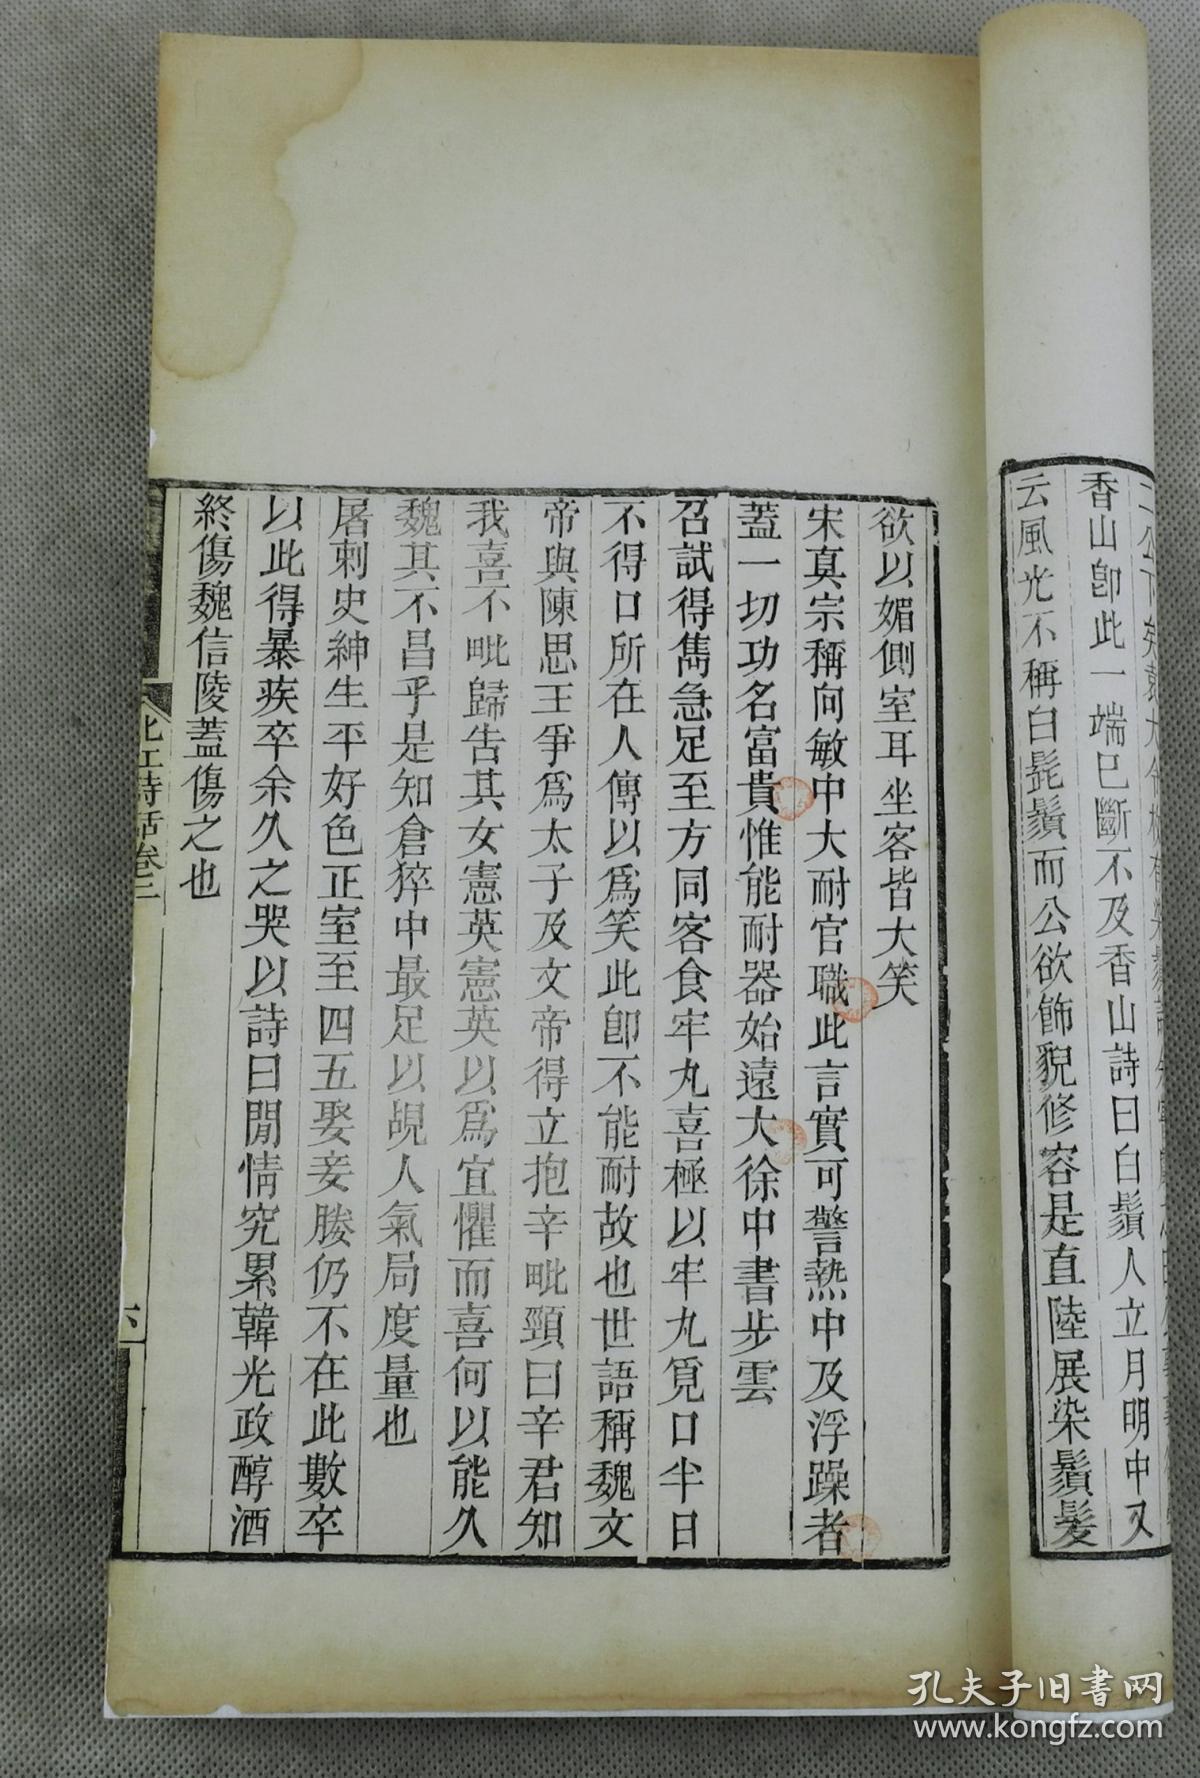 香山卽此一端已斷不及香山詩曰白鬚人立月明中又
云風光不稱白髭鬚而公欲飾貌修容是直陸展染鬚髮
欲以媚側室耳坐客皆大笑
宋真宗稱向敏中大耐官職此言實可警熱中及浮躁者
蓋一切功名富貴惟能耐器始遠大徐中書步雲
召試得雋急足至方同客食牢丸喜極以牢丸覓口半日
不得口所在人傳以爲笑此卽不能耐故也世語稱魏文
帝與陳思王爭爲太子及文帝得立抱辛毗頸曰辛君知
我喜不毗歸告其女憲英憲英以爲宜懼而喜何以能久
魏其不昌乎是知倉猝中最足以覘人氣局度量也
屠刺史紳生平好色正室至四五娶妾媵仍不在此數卒
以此得暴疾卒余久之哭以詩曰閒情究累韓光政醇酒
終傷魏信陵蓋傷之也
北江詩話卷三
孔夫子旧书网
www.kongfz.com